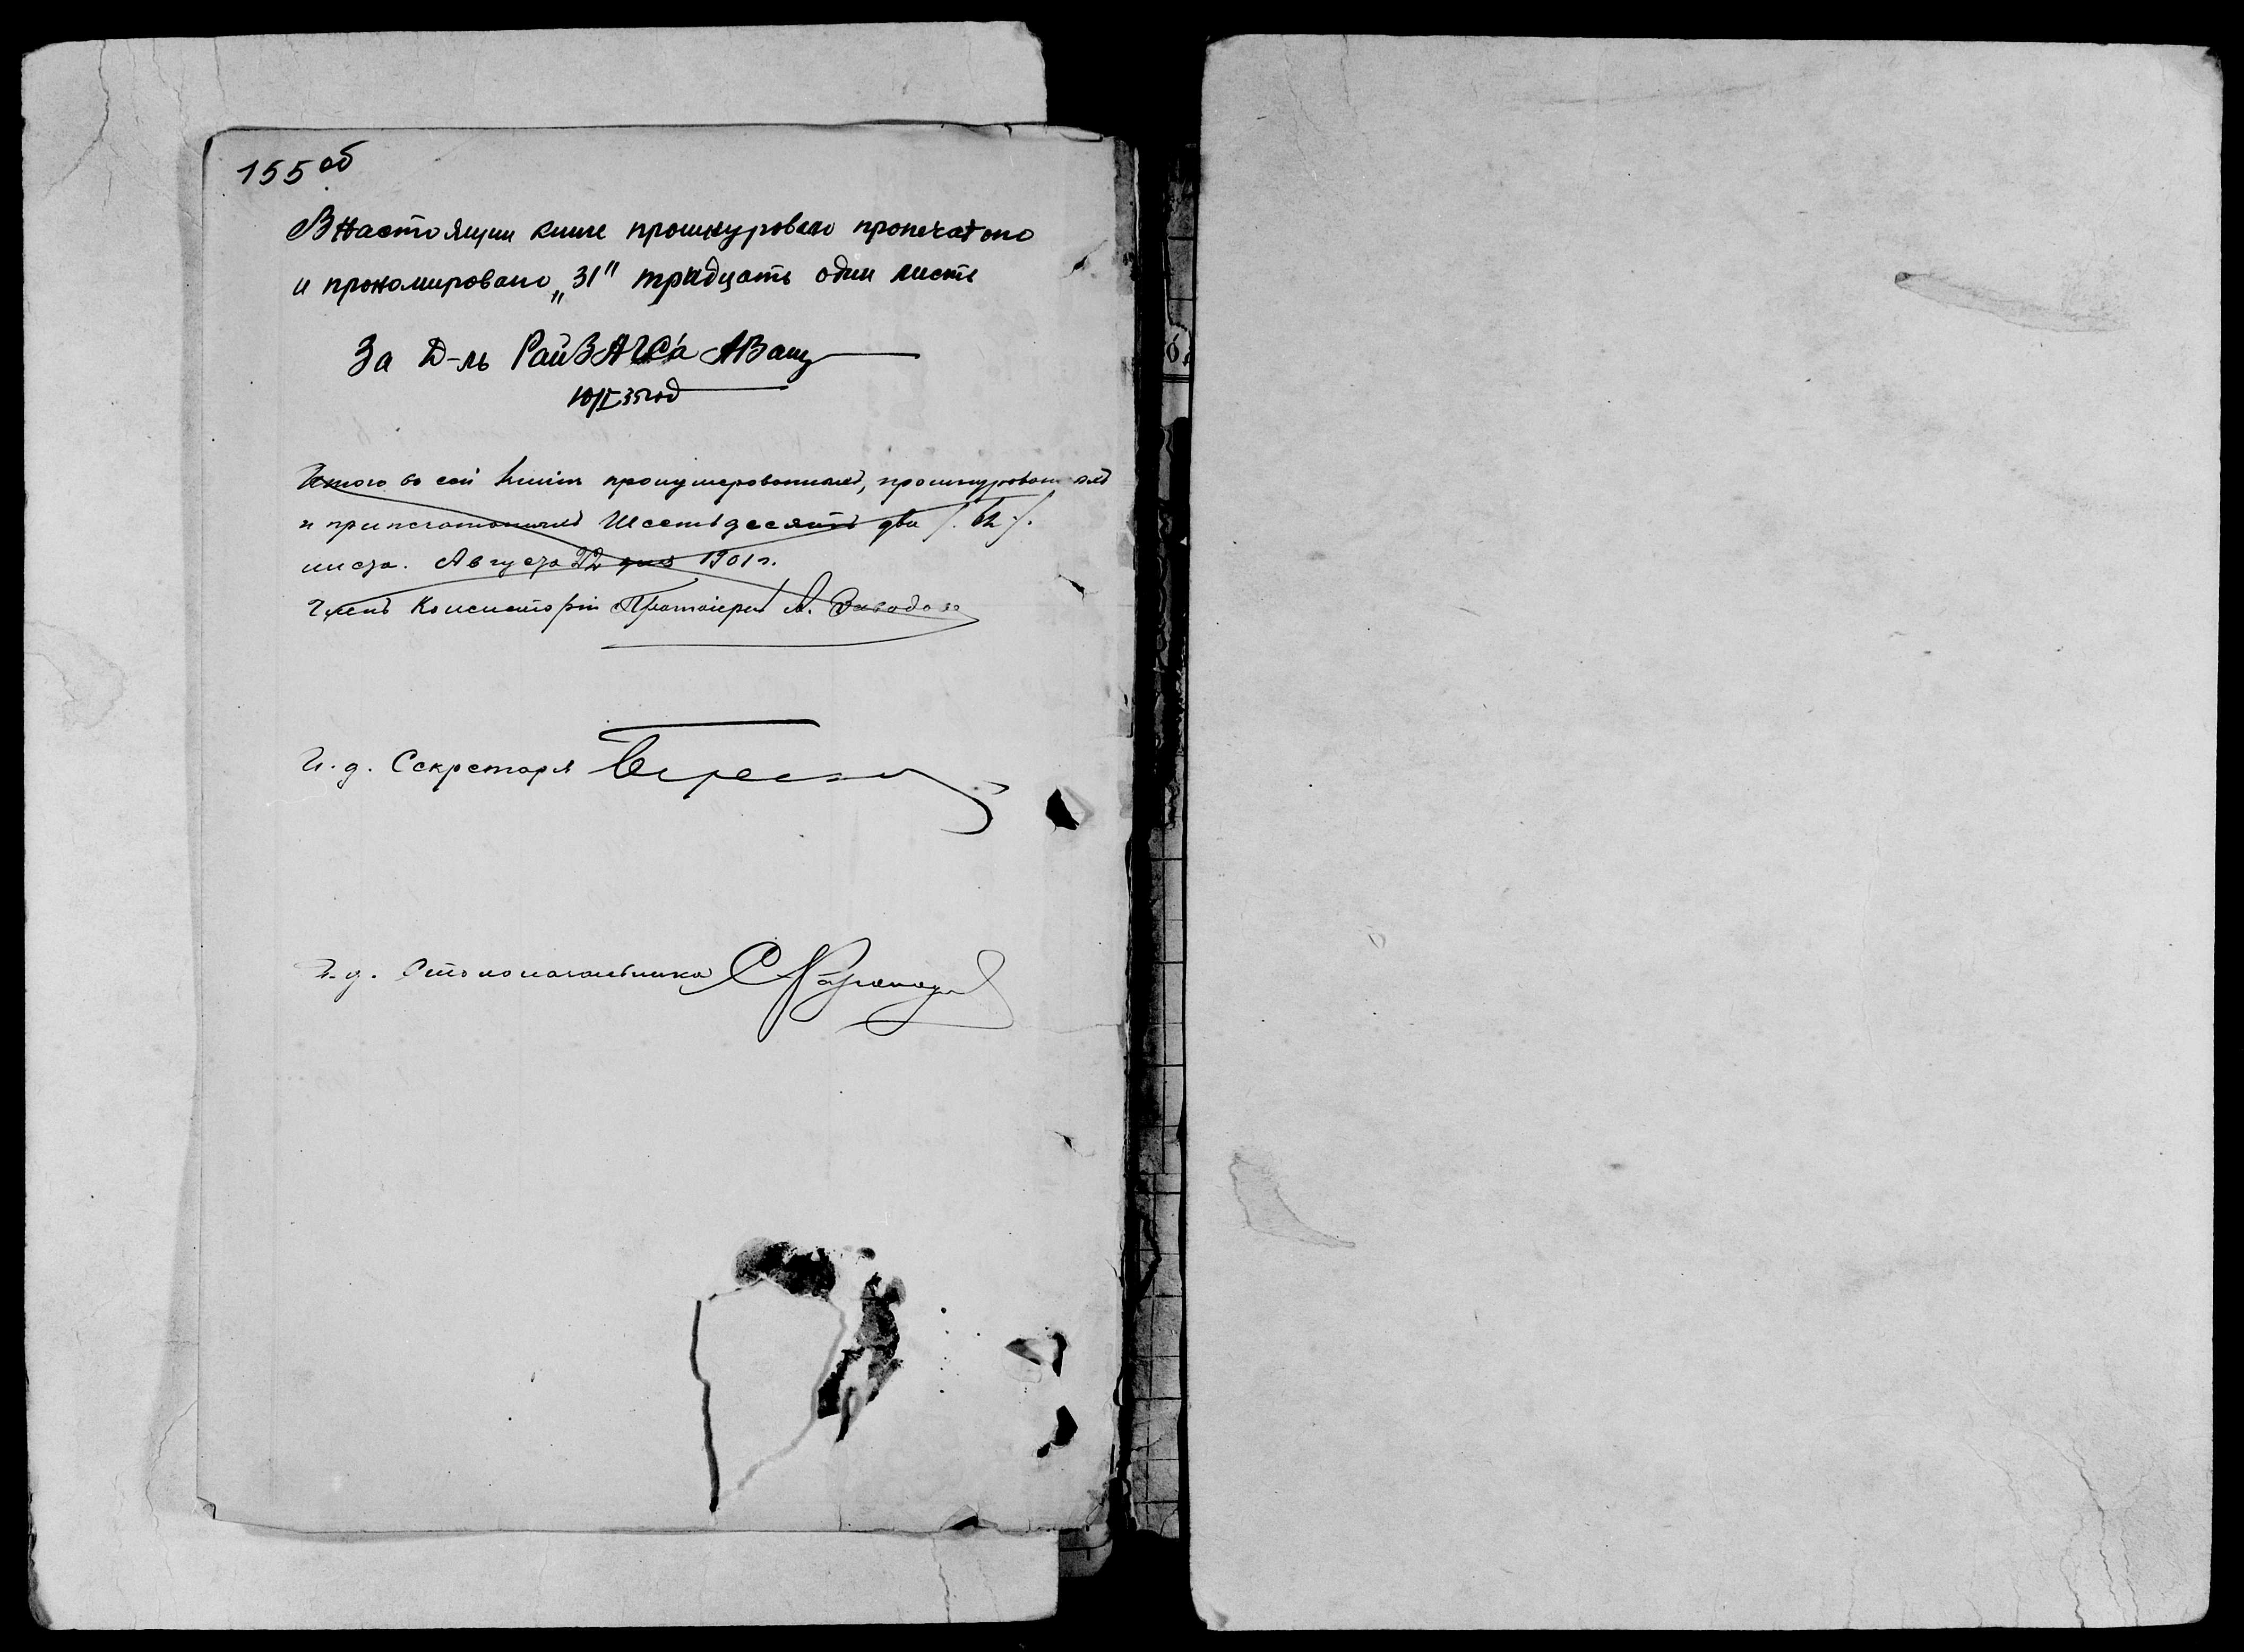 155 об
В настоящии книге прошнуровано пропечатоно
и прономировано „31" тридцать один листь
За Д-ль РайЗАГСа
10/V 35 год
Итого въ сей книгѣ пронумерованныхъ, прошнурованныхъ
и припечатанныхъ Шестьдесятъ два /. 62 ./.
листа. Августа 22 дня 1901 г.
Членъ Консисторіи Протоіерей А.
И. д. Секретаря
И. д. Столоначальника С